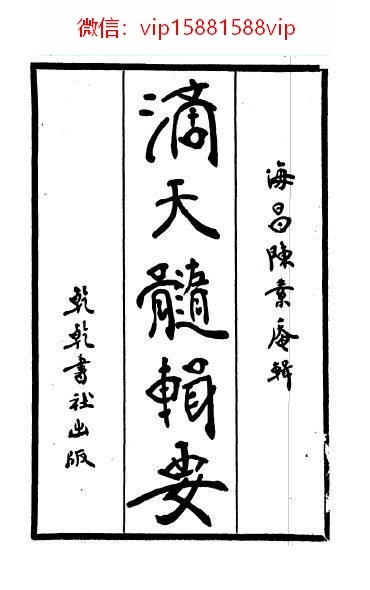 微信：vip15881588vip
海昌陳素庵輯
滴天髓輯要
乾乾書社出版